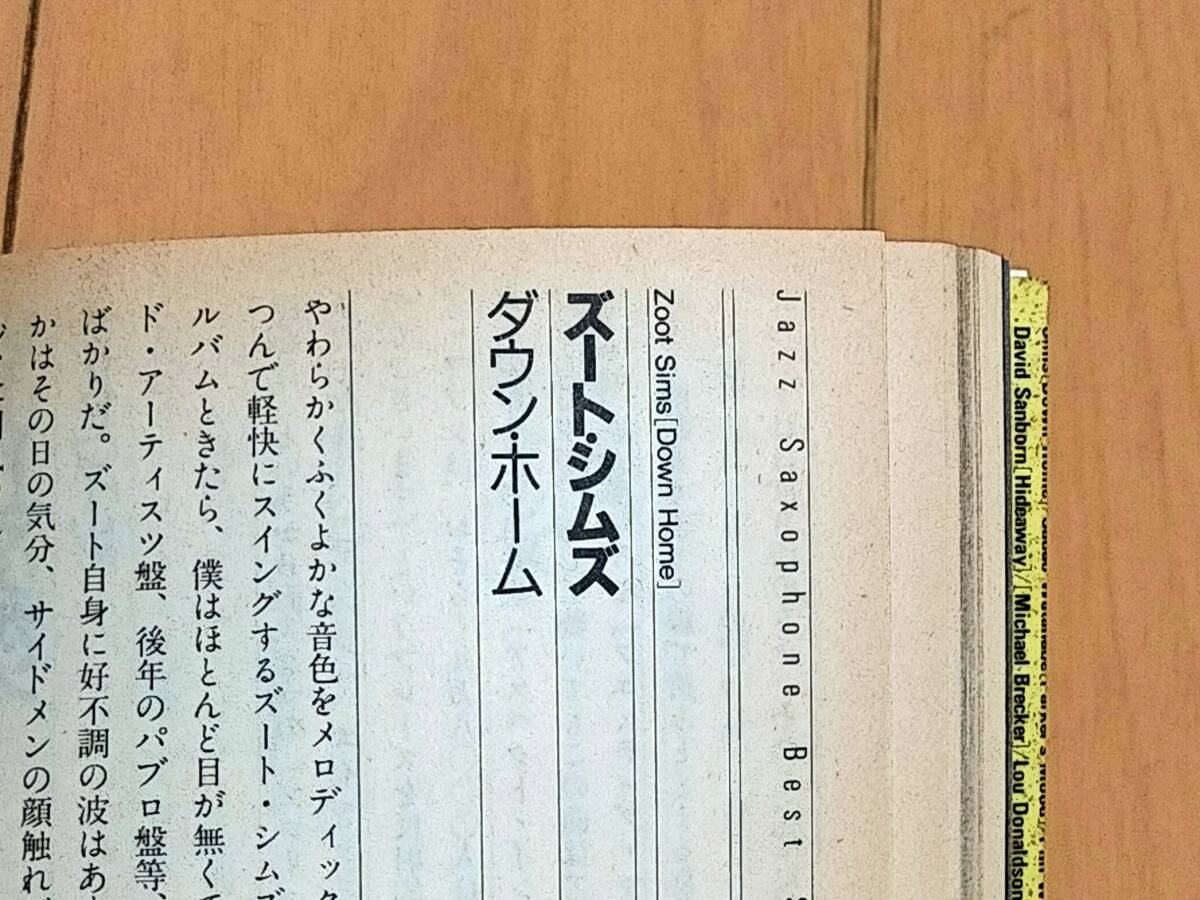 Jazz Saxophone Best
Zoot Sims[Down Home]
ズート・シムズ
ダウン・ホーム
やわらかくふくよかな音色をメロディック
つんで軽快にスイングするズート・シムズ
ルバムときたら、僕はほとんど目が無くて
ド・アーティスツ盤、後年のパブロ盤等、
ばかりだ。ズート自身に好不調の波はあ
かはその日の気分、サイドメンの顔触れ
David Sanborn[Hideaway]/[Michael Brecker]/Lou Donaldson